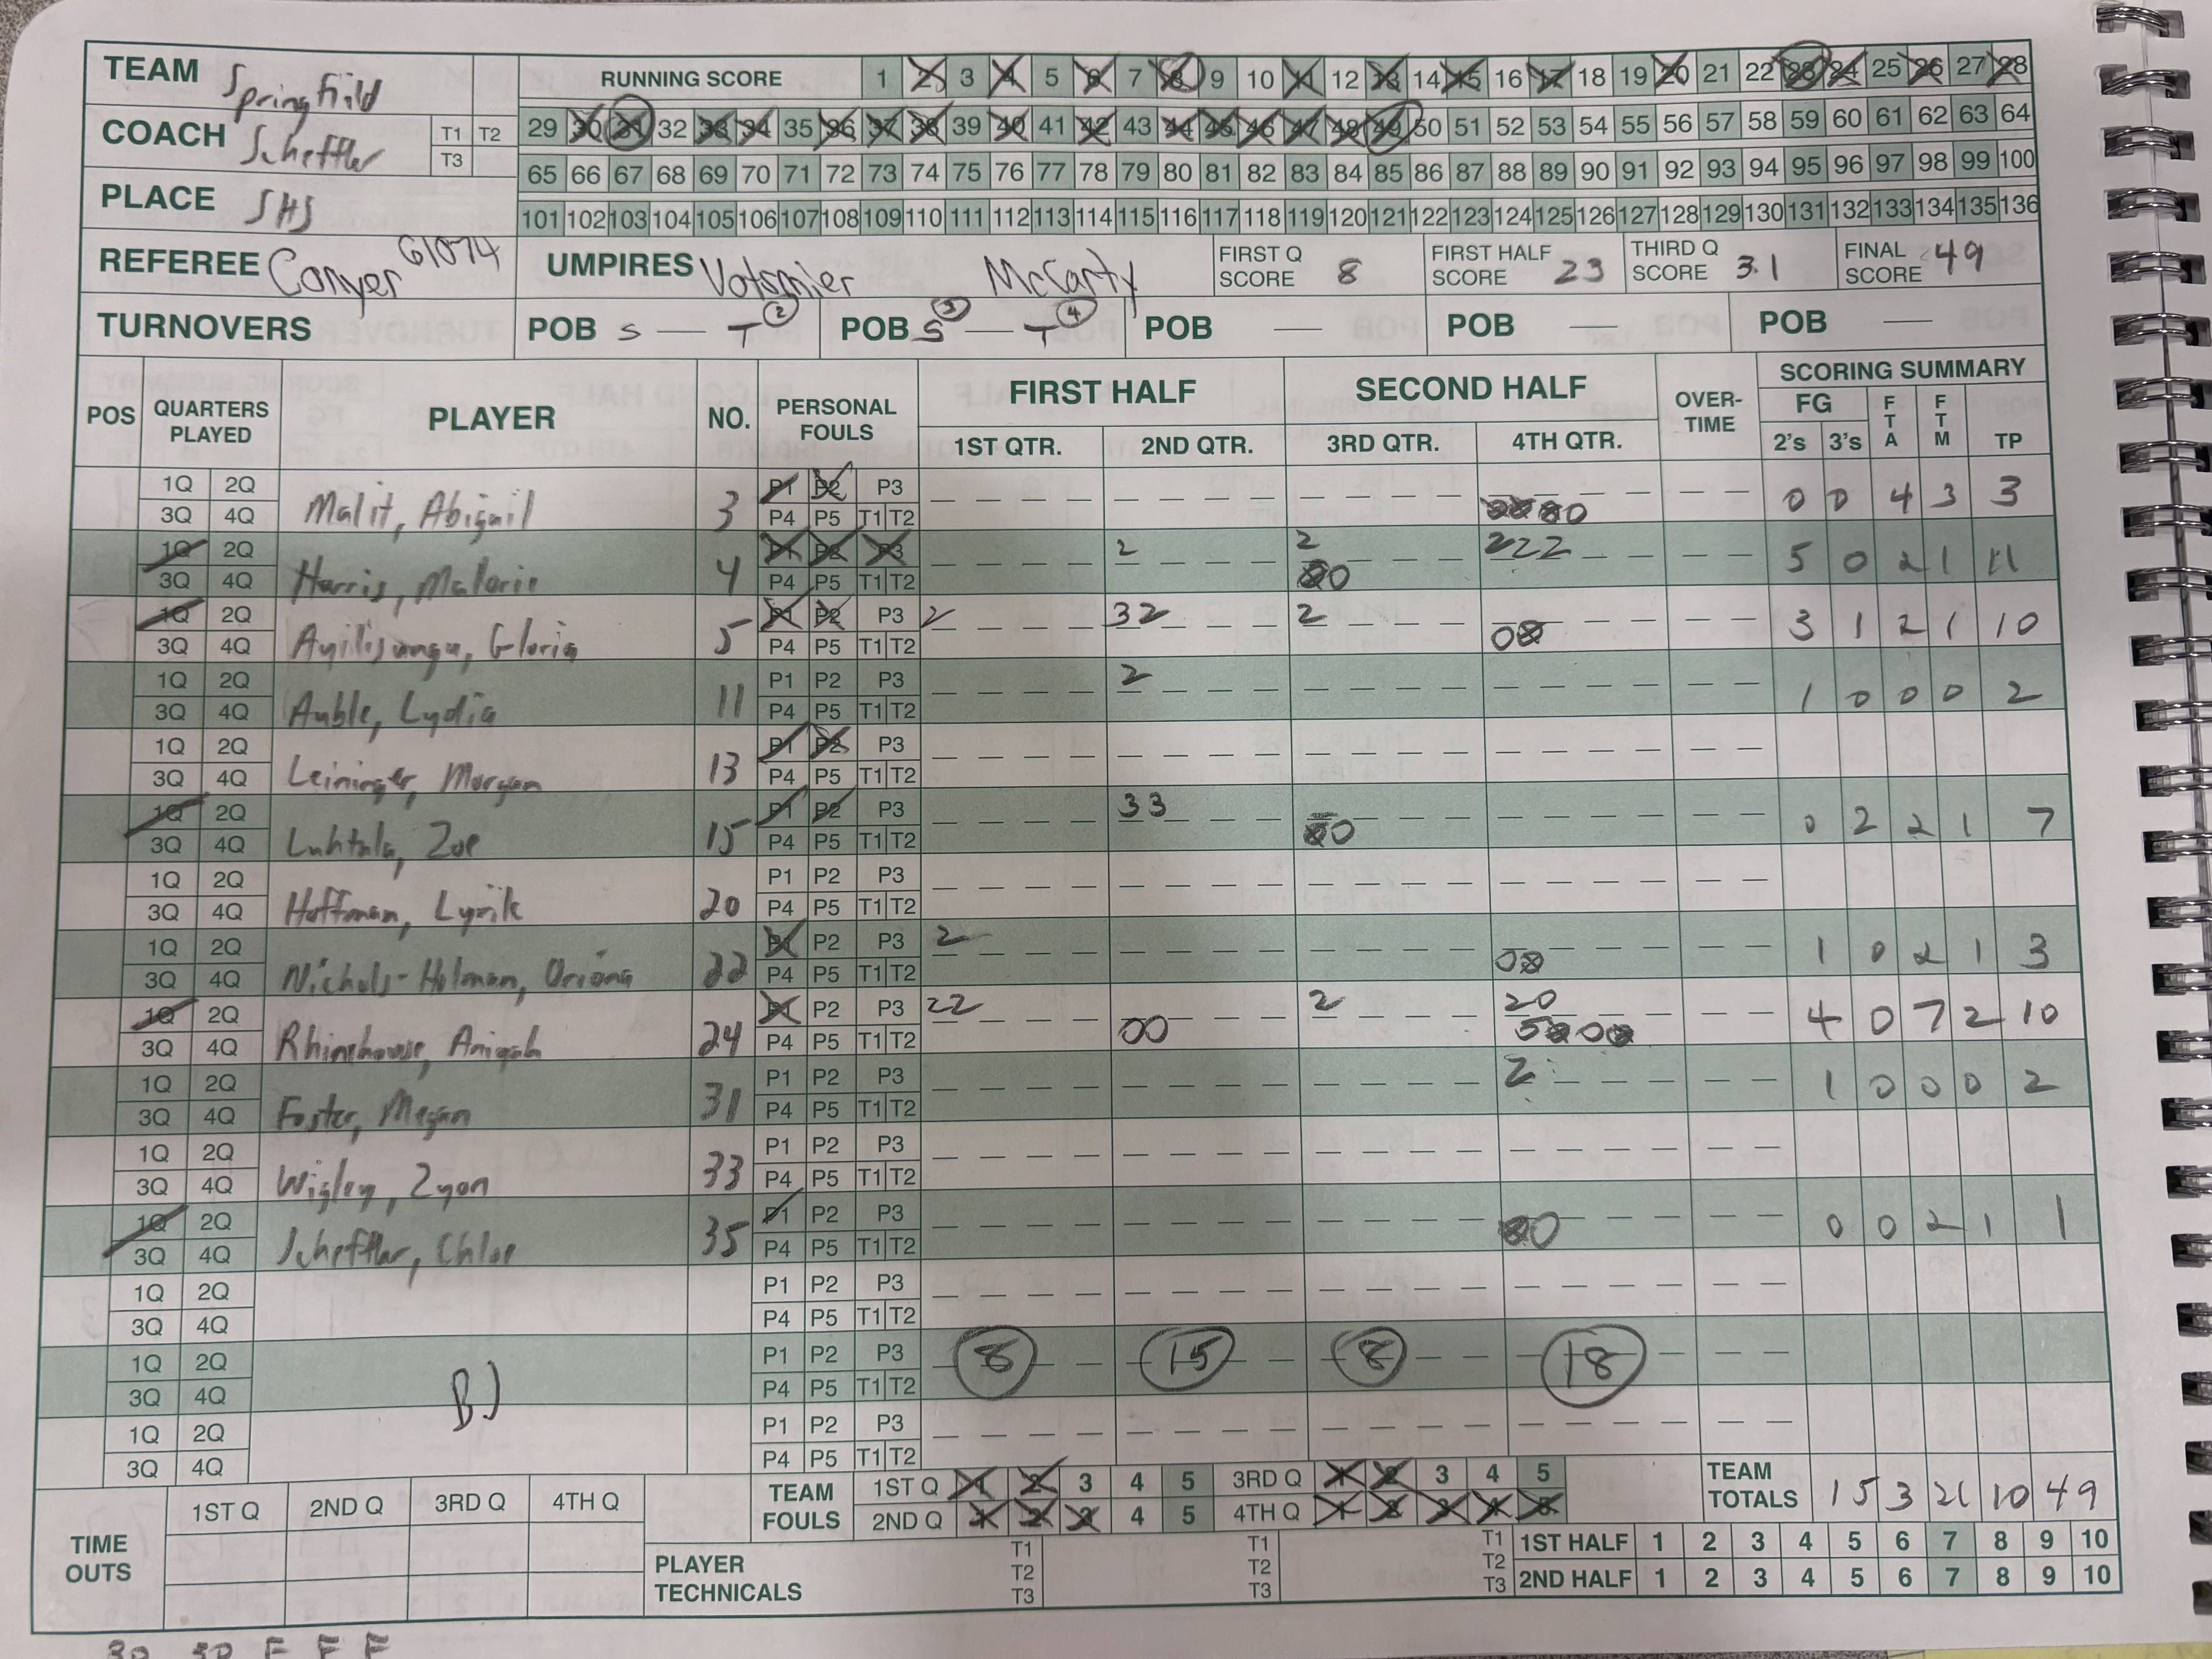 TEAM Springfield
RUNNING SCORE 1 2 3 4 5 6 7 8 9 10 11 12 13 14 15 16 17 18 19 20 21 22 23 24 25 26 27 28
COACH Scheffler T1 T2 T3
29 30 31 32 33 34 35 36 37 38 39 40 41 42 43 44 45 46 47 48 49 50 51 52 53 54 55 56 57 58 59 60 61 62 63 64
65 66 67 68 69 70 71 72 73 74 75 76 77 78 79 80 81 82 83 84 85 86 87 88 89 90 91 92 93 94 95 96 97 98 99 100
PLACE SHS
101 102 103 104 105 106 107 108 109 110 111 112 113 114 115 116 117 118 119 120 121 122 123 124 125 126 127 128 129 130 131 132 133 134 135 136
REFEREE Conyer 61074 UMPIRES Votsmier McCarty FIRST Q SCORE 8 FIRST HALF SCORE 23 THIRD Q SCORE 31 FINAL SCORE 49
TURNOVERS POB S — T 2 POB S 3 — T 4 POB — POB — POB —
POS QUARTERS PLAYED PLAYER NO. PERSONAL FOULS FIRST HALF SECOND HALF OVER-TIME SCORING SUMMARY
1ST QTR. 2ND QTR. 3RD QTR. 4TH QTR. FG 2's 3's FTA FTM TP
1Q 2Q Malit, Abigail 3 P1 P2 P3 0 0 4 3 3
3Q 4Q P4 P5 T1 T2 0 0 0 0
1Q 2Q Harris, Malorie 4 P1 P2 P3 2 2 222 5 0 2 1 11
3Q 4Q P4 P5 T1 T2 0 0
1Q 2Q 5 P1 P2 P3 2 32 2 3 1 2 1 10
3Q 4Q Gloria P4 P5 T1 T2 0 0
1Q 2Q Auble, Lydia 11 P1 P2 P3 2 1 0 0 0 2
3Q 4Q P4 P5 T1 T2
1Q 2Q Leininger, Morgan 13 P1 P2 P3
3Q 4Q P4 P5 T1 T2
1Q 2Q Luhtala, Zoe 15 P1 P2 P3 33 0 2 2 1 7
3Q 4Q P4 P5 T1 T2 0 0
1Q 2Q Hoffman, Lyrik 20 P1 P2 P3
3Q 4Q P4 P5 T1 T2
1Q 2Q Nichols-Holman, Oriona 22 P1 P2 P3 2 1 0 2 1 3
3Q 4Q P4 P5 T1 T2 0 0
1Q 2Q Rhinehouse, Aniyah 24 P1 P2 P3 22 2 20 4 0 7 2 10
3Q 4Q P4 P5 T1 T2 00
1Q 2Q Foster, Megan 31 P1 P2 P3 2 1 0 0 0 2
3Q 4Q P4 P5 T1 T2
1Q 2Q Wigley, Zyon 33 P1 P2 P3
3Q 4Q P4 P5 T1 T2
1Q 2Q Scheffler, Chloe 35 P1 P2 P3 0 0 2 1 1
3Q 4Q P4 P5 T1 T2 0 0
1Q 2Q P1 P2 P3
3Q 4Q P4 P5 T1 T2
1Q 2Q P1 P2 P3 8 15 8 18
3Q 4Q P4 P5 T1 T2
1Q 2Q P1 P2 P3
3Q 4Q P4 P5 T1 T2
TIME OUTS 1ST Q 2ND Q 3RD Q 4TH Q
TEAM FOULS 1ST Q 1 2 3 4 5 3RD Q 1 2 3 4 5 TEAM TOTALS 15 3 21 10 49
2ND Q 1 2 3 4 5 4TH Q 1 2 3 4 5
PLAYER TECHNICALS T1 T2 T3 T1 T2 T3 T1 T2 T3
1ST HALF 1 2 3 4 5 6 7 8 9 10
2ND HALF 1 2 3 4 5 6 7 8 9 10